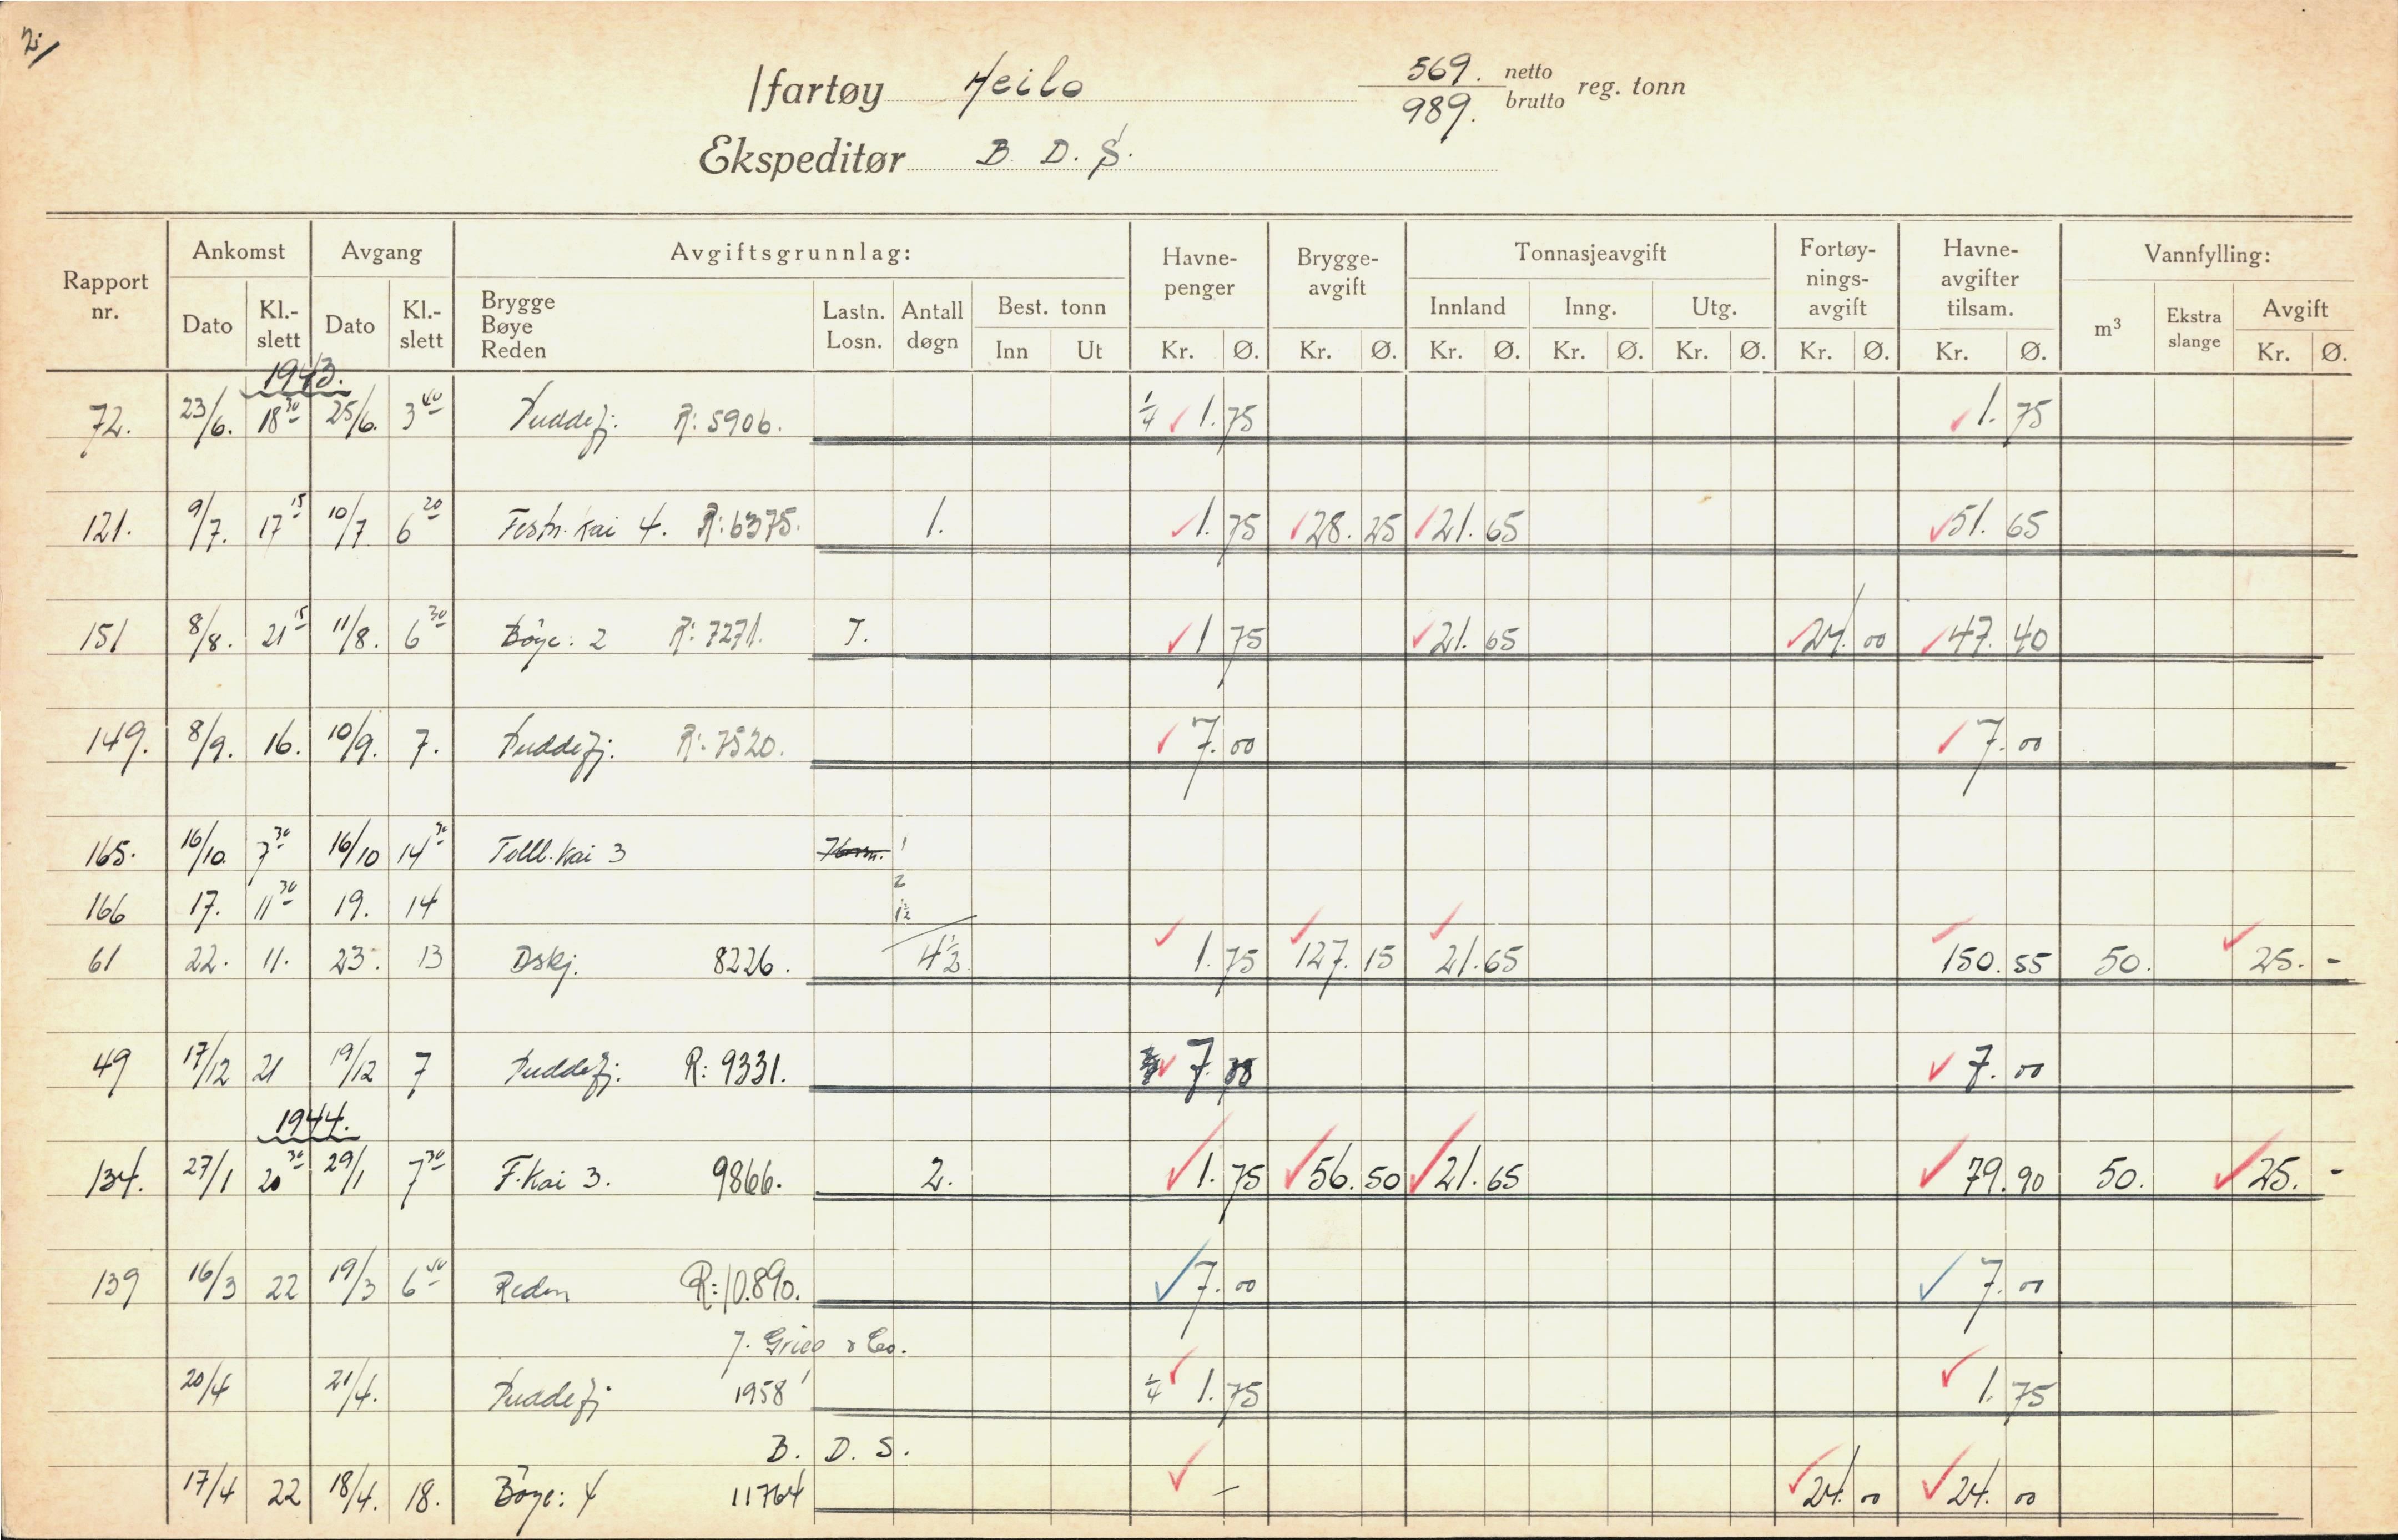 2/
/fartøy Heilo 569. netto
989. brutto reg. tonn
Ekspeditør B. D. S.
Rapport nr. Ankomst Avgang Avgiftsgrunnlag: Havne-penger Brygge-avgift Tonnasjeavgift Fortøy-nings-avgift Havne-avgifter tilsam. Vannfylling:
Dato Kl.-slett Dato Kl.-slett Brygge Bøye Reden Lastn. Losn. Antall døgn Best. tonn Innland Inng. Utg. m³ Ekstra slange Avgift
Inn Ut Kr. Ø. Kr. Ø. Kr. Ø. Kr. Ø. Kr. Ø. Kr. Ø. Kr. Ø. Kr. Ø.
1943.
72. 23/6. 18 30 25/6. 3 40 Puddefj. R: 5906. 1/4 1.75 1.75
121. 9/7. 17 15 10/7 6 20 Festn. Kai 4. R: 6375. 1. 1.75 28.25 21.65 51.65
151 8/8. 21 15 11/8. 6 30 Bøye: 2 R: 7271. T. 1 75 21.65 24.00 47.40
149. 8/9. 16. 10/9. 7. Puddefj. R: 7520. 7.00 7.00
165. 16/10. 7 30 16/10 14 30 Tollb. Kai 3 1
2
166 17. 11 30 19. 14 1 1/2
61 22. 11. 23. 13 Dskj. 8226. 4 1/2 1.75 127.15 21.65 150.55 50. 25. -
49 17/12 21 19/12 7 Puddefj. R: 9331. 7.00 7.00
1944.
134. 27/1 20 30 29/1 7 30 F. Kai 3. 9866. 2. 1.75 56.50 21.65 79.90 50. 25. -
139 16/3 22 19/3 6 40 Reden R: 10.890. 7.00 7.00
J. Grieg & Co.
20/4 21/4. Puddefj 1958 1/4 1.75 1.75
B. D. S.
17/4 22 18/4. 18. Bøye: 4 11764 — 24.00 24.00